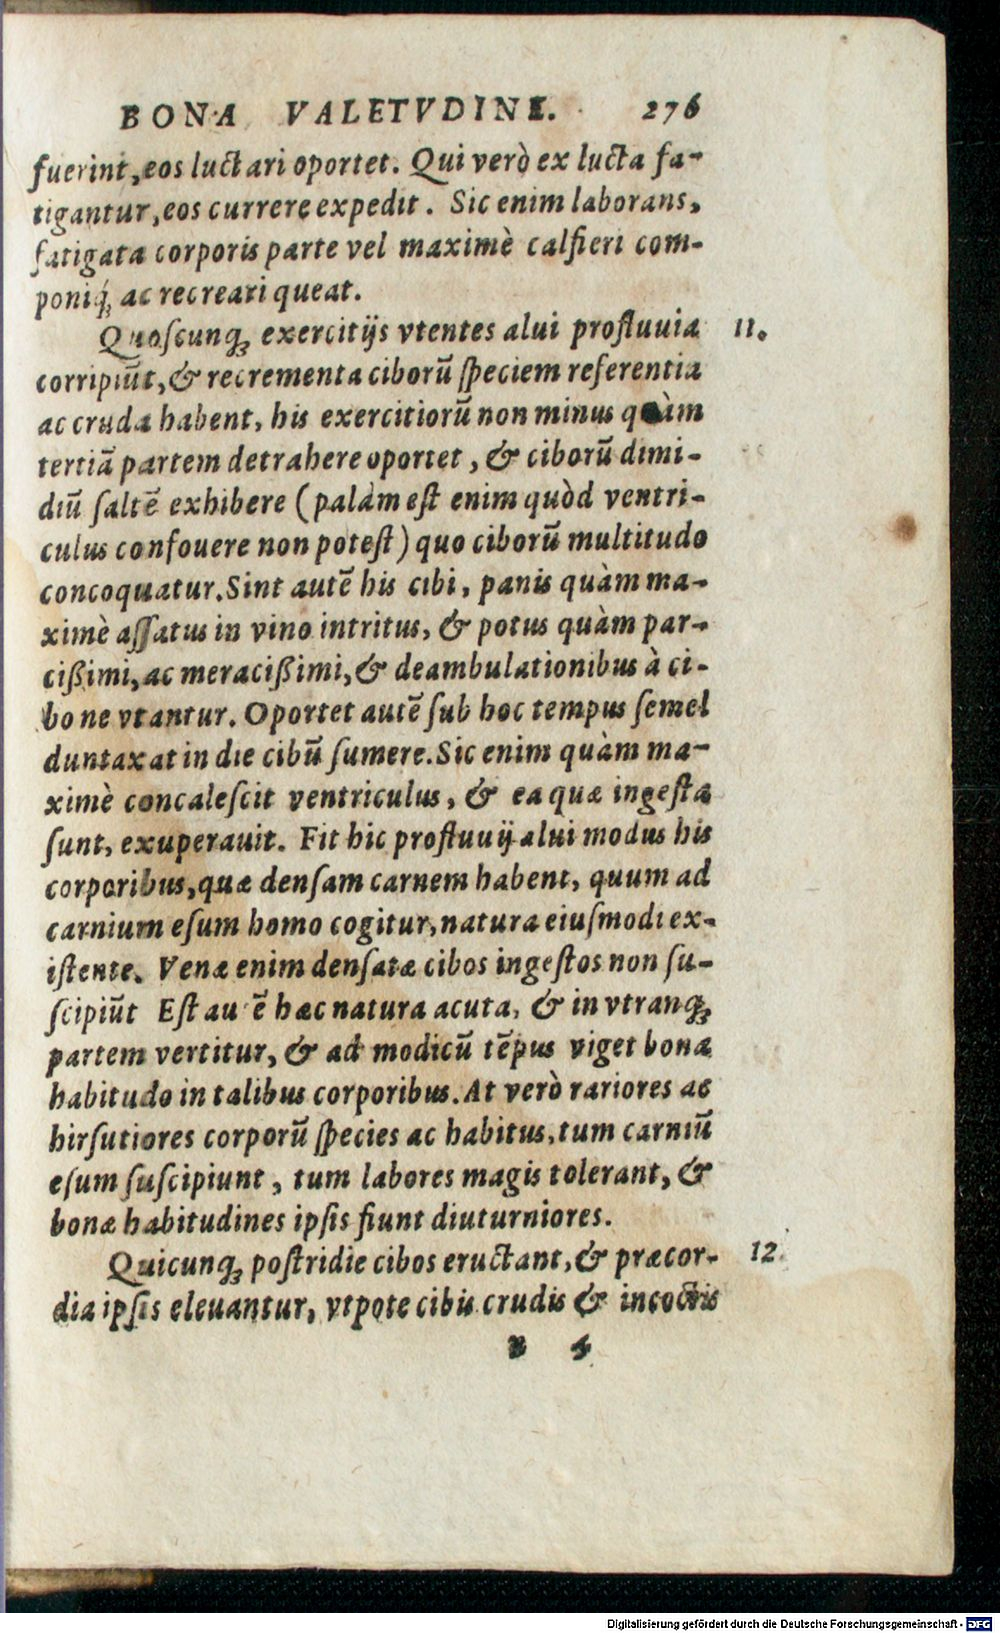 BONA VALETVDINE. 276
fuerint, eos luctari oportet. Qui verò ex lucta fa-
tigantur, eos currere expedit. Sic enim laborans,
fatigata corporis parte vel maximè calfieri com-
poniq́; ac recreari queat.
Quoſcunq; exercitijs vtentes alui profluuia 11.
corripiũt, & recrementa ciborũ ſpeciem referentia
ac cruda habent, his exercitiorũ non minus quàm
tertiã partem detrahere oportet, & ciborũ dimi-
diũ ſaltẽ exhibere (palàm eſt enim quòd ventri-
culus confouere non poteſt) quo ciborũ multitudo
concoquatur. Sint autẽ his cibi, panis quàm ma-
ximè aſſatus in vino intritus, & potus quàm par-
cißimi, ac meracißimi, & deambulationibus à ci-
bo ne vtantur. Oportet autẽ ſub hoc tempus ſemel
duntaxat in die cibũ ſumere. Sic enim quàm ma-
ximè concaleſcit ventriculus, & ea quæ ingeſta
ſunt, exuperauit. Fit hic profluuij alui modus his
corporibus, quæ denſam carnem habent, quum ad
carnium eſum homo cogitur, natura eiuſmodi ex-
iſtente. Venæ enim denſatæ cibos ingeſtos non ſu-
ſcipiũt Eſt au ẽ hæc natura acuta, & in vtranq;
partem vertitur, & ad modicũ tẽpus viget bonæ
habitudo in talibus corporibus. At verò rariores ac
hirſutiores corporũ ſpecies ac habitus, tum carniũ
eſum ſuſcipiunt, tum labores magis tolerant, &
bonæ habitudines ipſis fiunt diuturniores.
Quicunq; poſtridie cibos eructant, & præcor- 12.
dia ipſis eleuantur, vtpote cibis crudis & incoctis
B 4
Digitalisierung gefördert durch die Deutsche Forschungsgemeinschaft - DFG